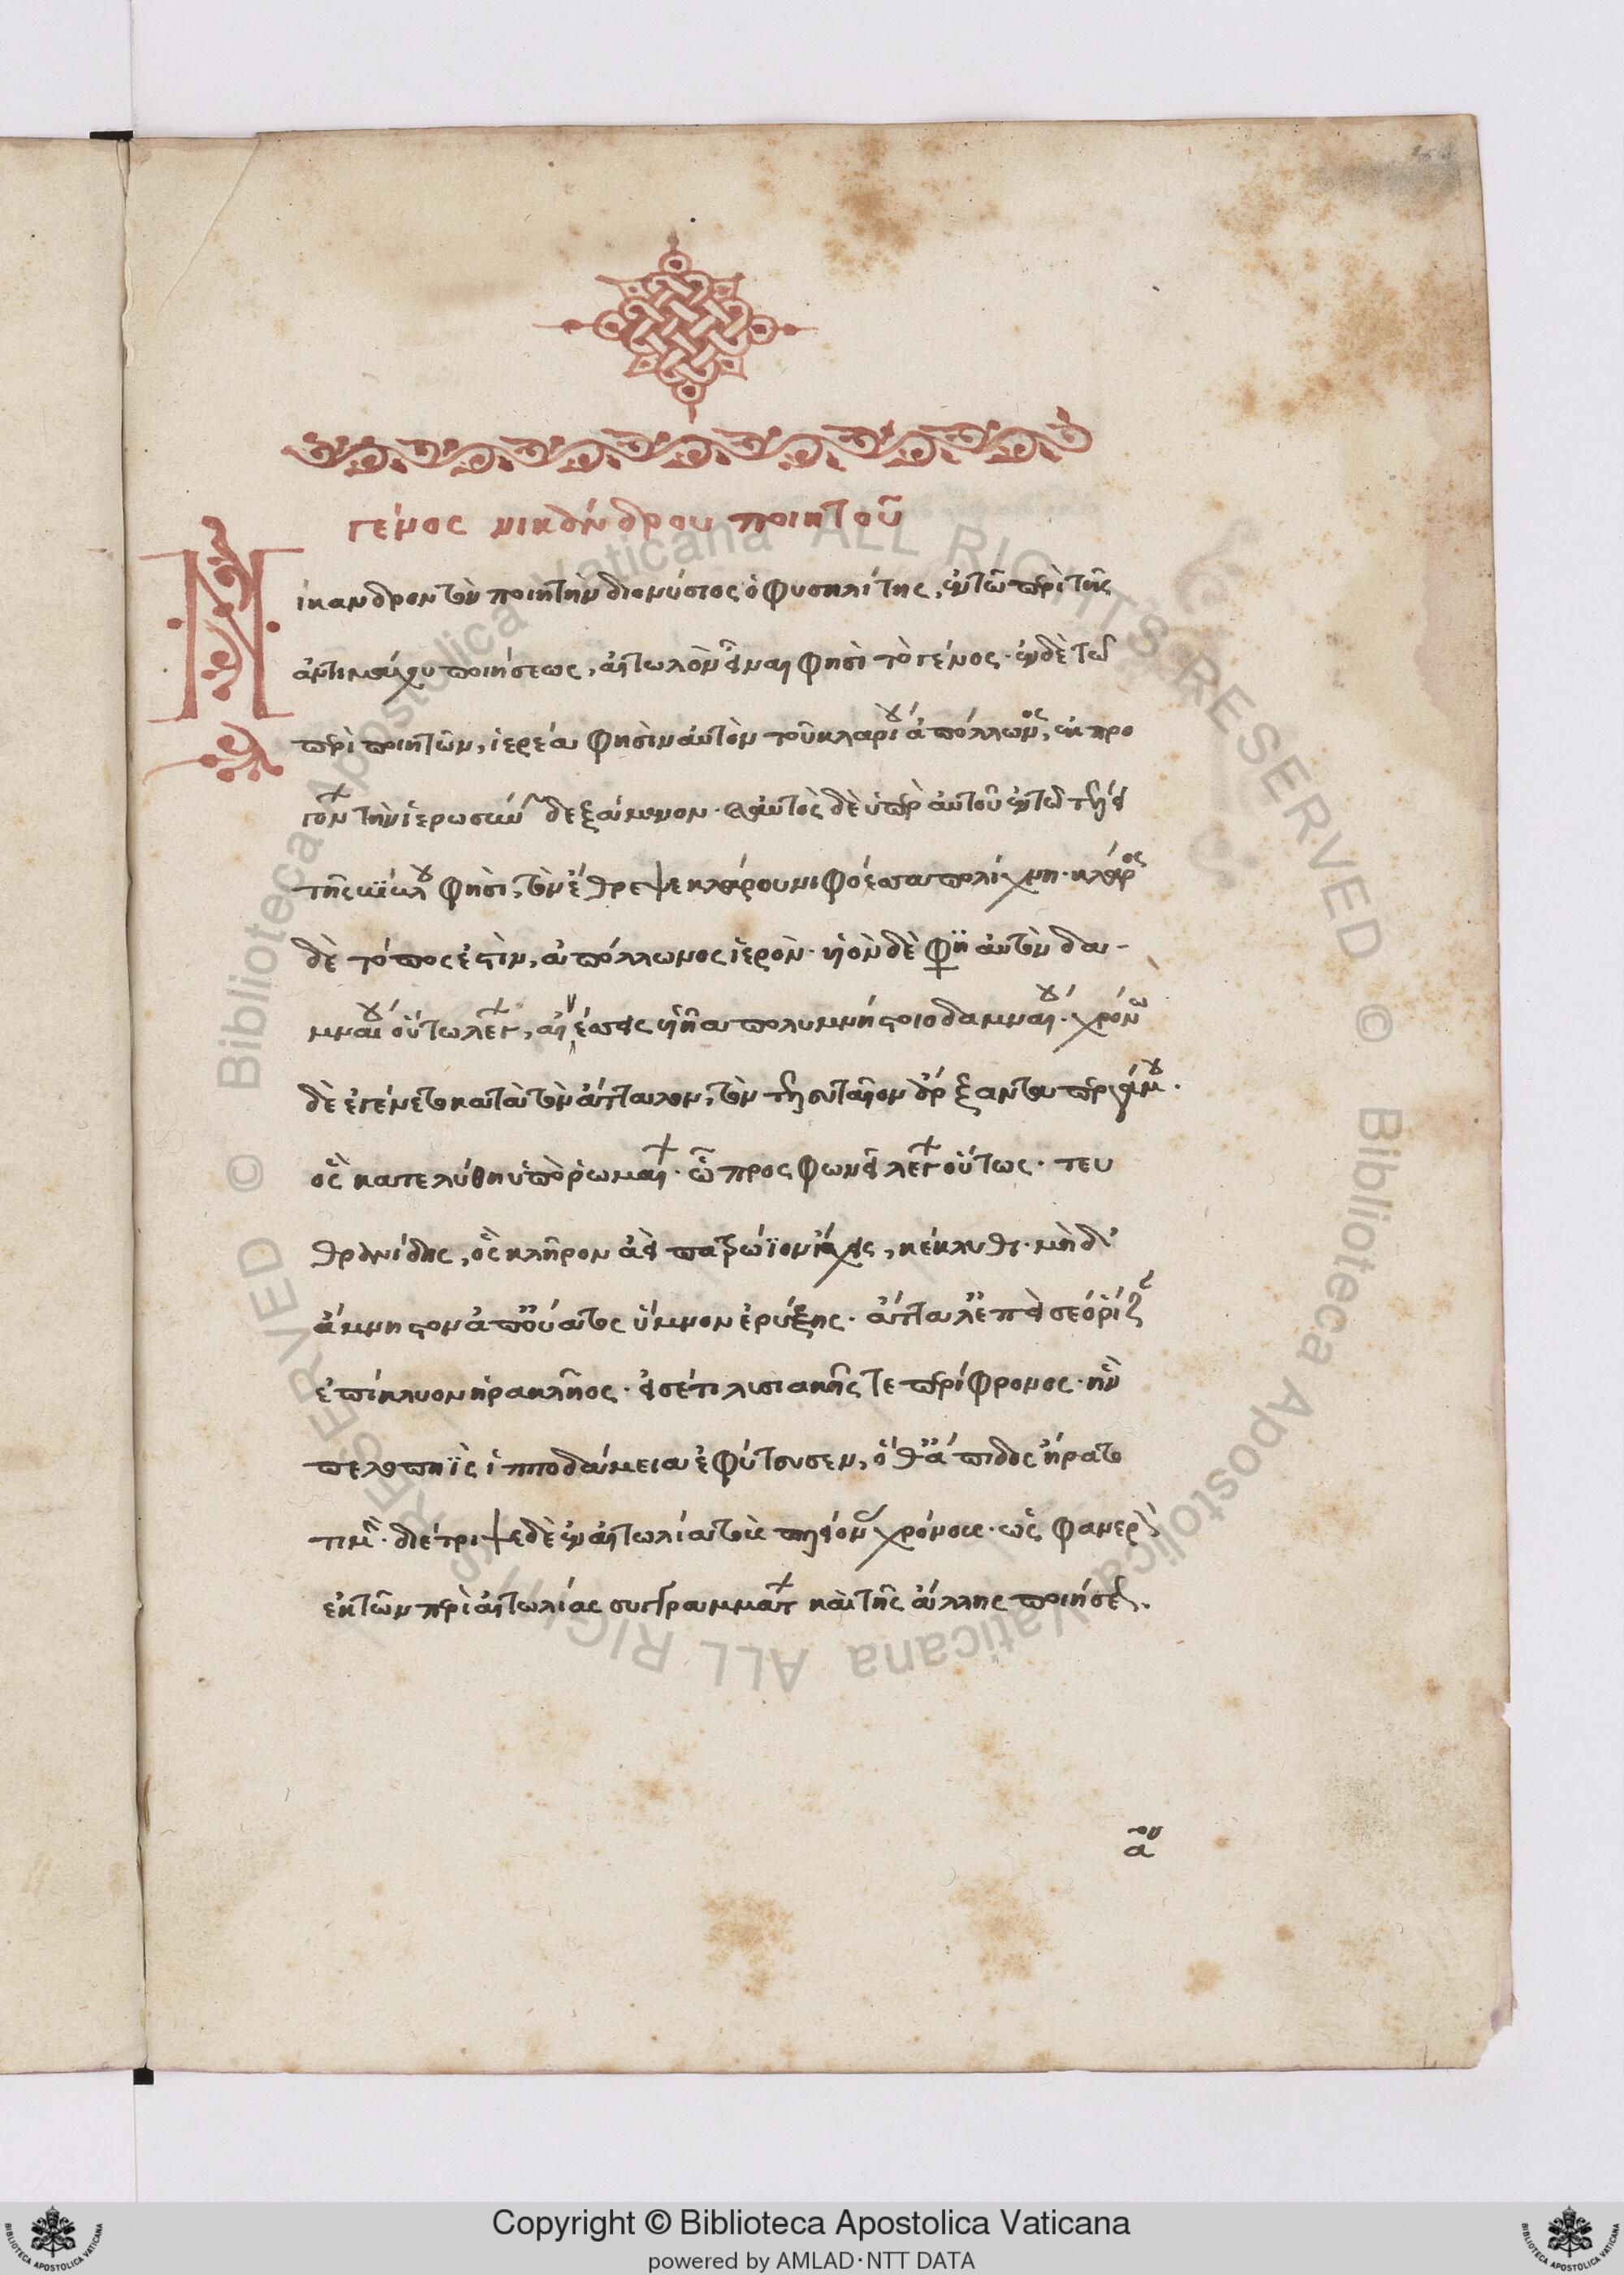 γένος νικάνδρου ποιητοῦ
Νίκανδρον τὸν ποιητὴν διονύσιος ὁ φυσηλίτης, ἐν τῶ περὶ τῆς
ἀντιμάχου ποιήσεως, αἰτωλὸν εἶναι φησὶ τὸ γένος· ἐν δὲ τῶ
περὶ ποιητῶν, ἱερέα φησὶν αὐτὸν τοῦ κλαρίου ἀπόλλωνος, ἐκ προ
γόνων τὴν ἱερωσύνην δεξάμενον· αὐτὸς δὲ ὑπὲρ αὐτοῦ ἐν τῶ τέλει
τῆς φησὶ, τὸν ἔθρεψε κλάρου νιφόεσσα πολίχνη· κλάρος
δὲ τόπος ἐστὶν, ἀπόλλωνος ἱερὸν· υἱὸν δὲ φησὶν αὐτὸν δα-
μναίου οὕτω λέγων, αἰνήσεις υἱῆα πολυμνήστοιο δαμναίου· χρόνω
δὲ ἐγένετο κατὰ τὸν ἄτταλον, τὸν τελευταῖον ἄρξαντα περγάμου·
ὃς κατελύθη ὑπὸ ῥωμαίων· ὧ προσφωνεῖ λέγων οὕτως· τευ
θρανίδης, ὃς κλῆρον ἀεὶ πατρώϊον ἴσχεις, κέκλυθι· μὴ δ'
ἄμνηστον ἀπ' οὔατος ὕμνον ἐρύξης· ἄτταλ' ἐπεὶ σέο ῥίζαν
ἐπίκλυον ἡρακλῆος· ἐξέτι λυσιακῆς τε περίφρονος· ἣν
πελοπηῒς ἱπποδάμεια ἐφύτευσεν, ὅθ' ἄπιδος ἤρατο
τιμήν· διέτριψε δὲ ἐν αἰτωλία τοὺς πλείονας χρόνους· ὡς φανερὸν
ἐκ τῶν περὶ αἰτωλίας συγγραμμάτων καὶ τῆς ἄλλης ποιήσεως.
αον
Copyright © Biblioteca Apostolica Vaticana
powered by AMLAD·NTT DATA
© Biblioteca Apostolica Vaticana ALL RIGHTS RESERVED © Biblioteca Apostolica Vaticana ALL RIGHTS RESERVED